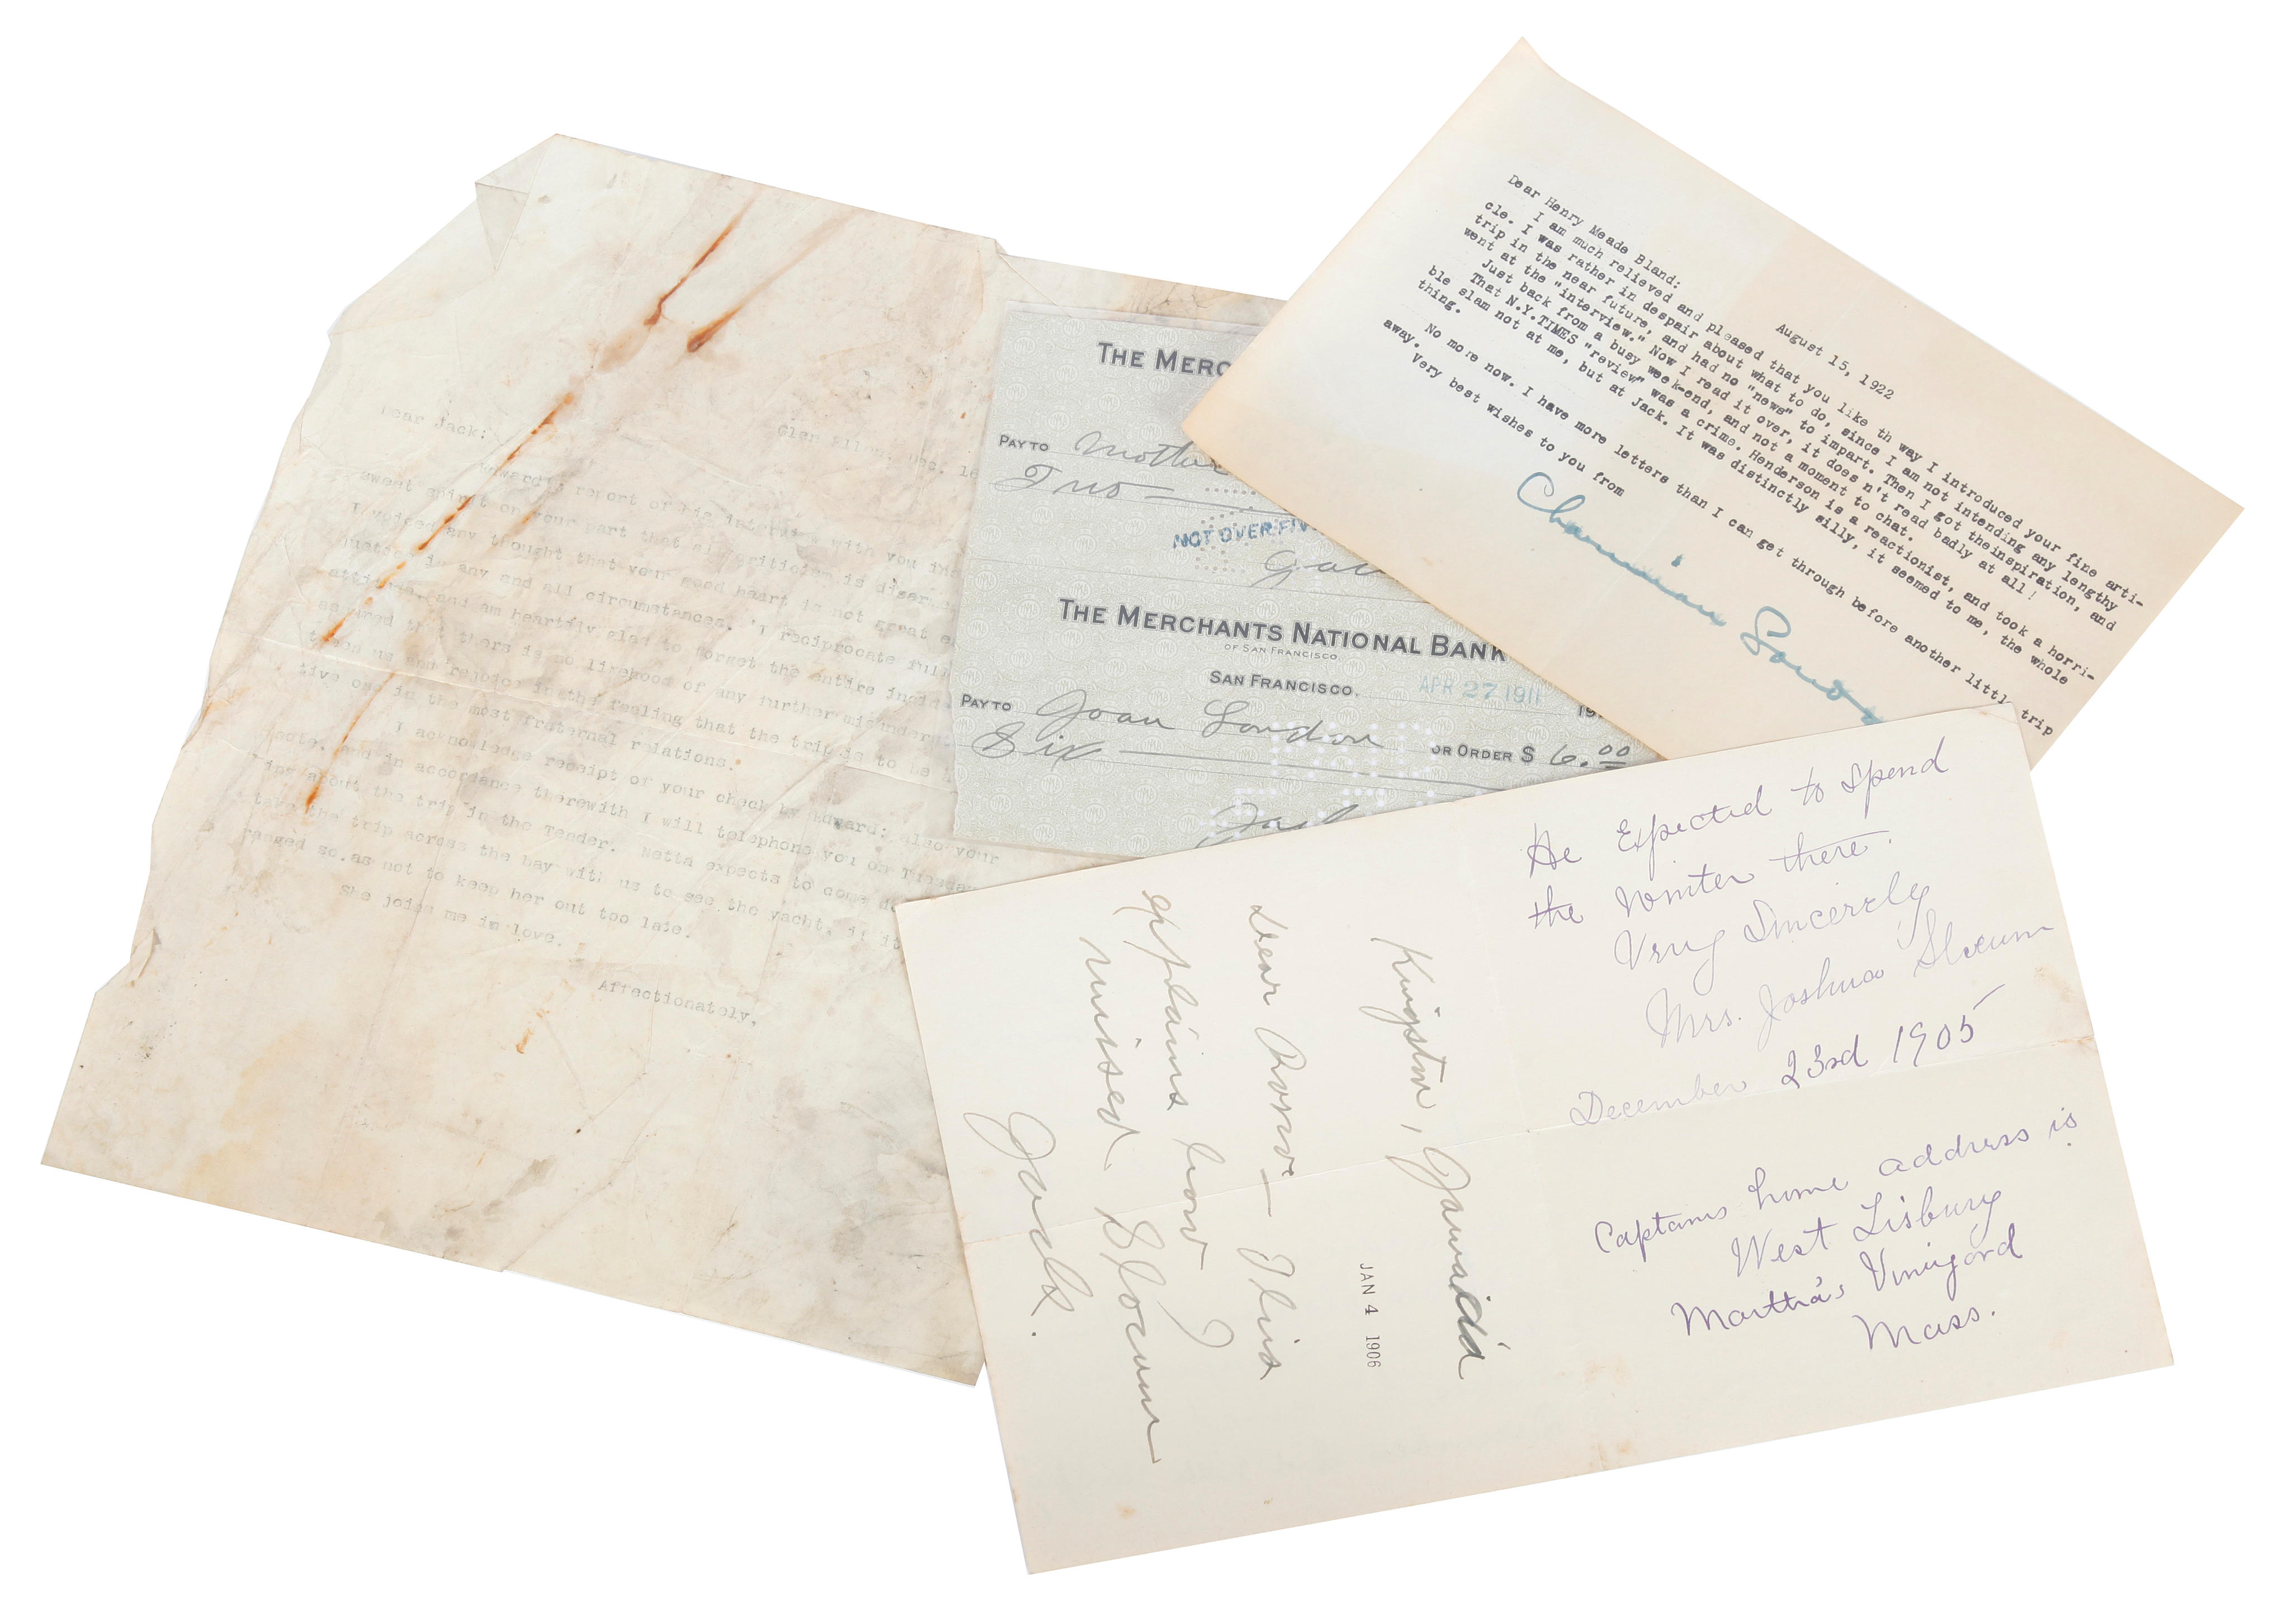 Glen Ellen, Dec. 16
Dear Jack:
report of his interview with you
sweet spirit on your part that all criticism is
I voiced any thought that your good heart is not great
in any and all circumstances. I reciprocate
and am heartily glad to forget the entire
that there is no of any further
us and rejoice in the feeling that the trip is to be
in the most fraternal relations.
I acknowledge receipt of your check by Edward; also your
note, and in accordance therewith I will telephone you on Tuesday
about the trip in the Tender. Netta expects to come
take the trip across the bay with us to see the yacht, if it
so as not to keep her out too late.
She joins me in love.
Affectionately,
THE MERC
PAY TO Mother
Two
NOT OVER FIV
THE MERCHANTS NATIONAL BANK
OF SAN FRANCISCO
SAN FRANCISCO, APR 27 1911 19
PAY TO Joan London OR ORDER $ 6.00
Six
Jack
August 15, 1922
Dear Henry Meade Bland:
I am much relieved and pleased that you like th way I introduced your fine arti-
cle. I was rather in despair about what to do, since I am not intending any lengthy
trip in the near future, and had no "news" to impart. Then I got theinspiration, and
went at the "interview." Now I read it over, it does n't read badly at all!
Just back from a busy week-end, and not a moment to chat.
That N.Y.TIMES "review" was a crime. Henderson is a reactionist, and took a horri-
ble slam not at me, but at Jack. It was distinctly silly, it seemed to me, the whole
thing.
No more now. I have more letters than I can get through before another little trip
away.
Very best wishes to you from
Charmian London
He Expected to Spend
the Winter there.
Very Sincerely
Mrs. Joshua Slocum
December 23rd 1905
Captains home address is
West Tisbury
Martha's Vineyard
Mass.
Kingston, Jamaica
JAN 4 1906
Dear — This
explains how I
missed Slocum
Jack.